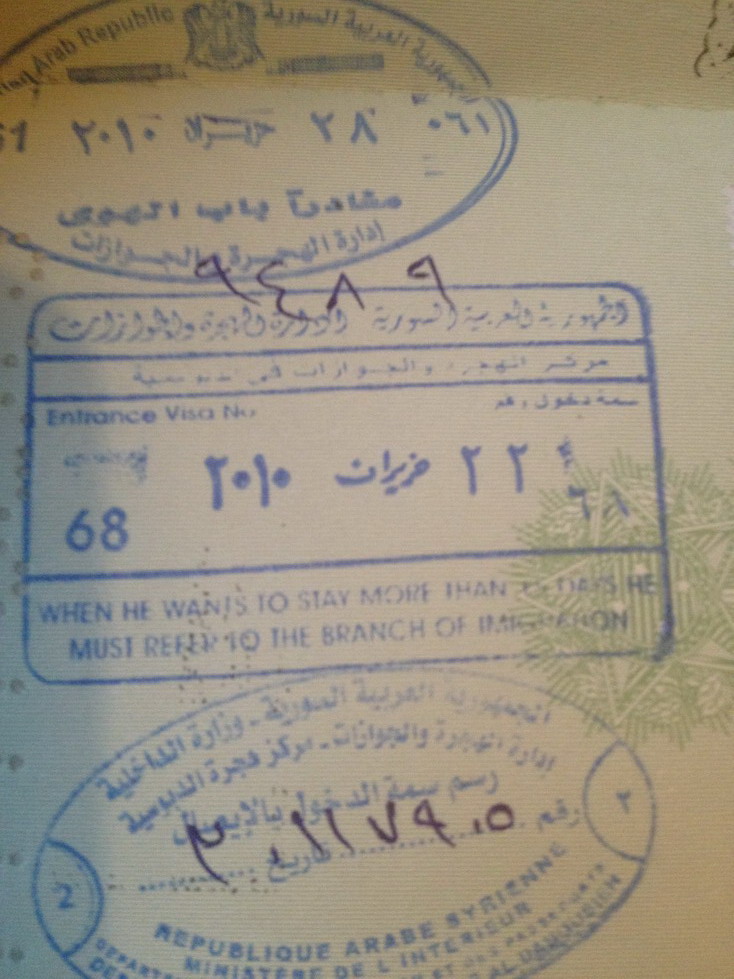 Arab Republic
الجمهورية العربية السورية
٢٨ ٢٠١٠ ٠٦١
مغادرة باب الهوى
إدارة الهجرة والجوازات
٩٤٨٩
الجمهورية العربية السورية إدارة الهجرة والجوازات
مركز الهجرة والجوازات في
Entrance Visa No.
سمة دخول رقم
٢٢ حزيران ٢٠١٠
68
٦٨
WHEN HE WANTS TO STAY MORE THAN DAYS HE
MUST REFER TO THE BRANCH OF IMIGRATION
الجمهورية العربية السورية - وزارة الداخلية
إدارة الهجرة والجوازات - مركز هجرة الدبوسية
رسم سمة الدخول بالإيصال
رقم
تاريخ
٢
2
REPUBLIQUE ARABE SYRIENNE
MINISTÈRE DE L'INTERIEUR
ET DES PASSEPORTS